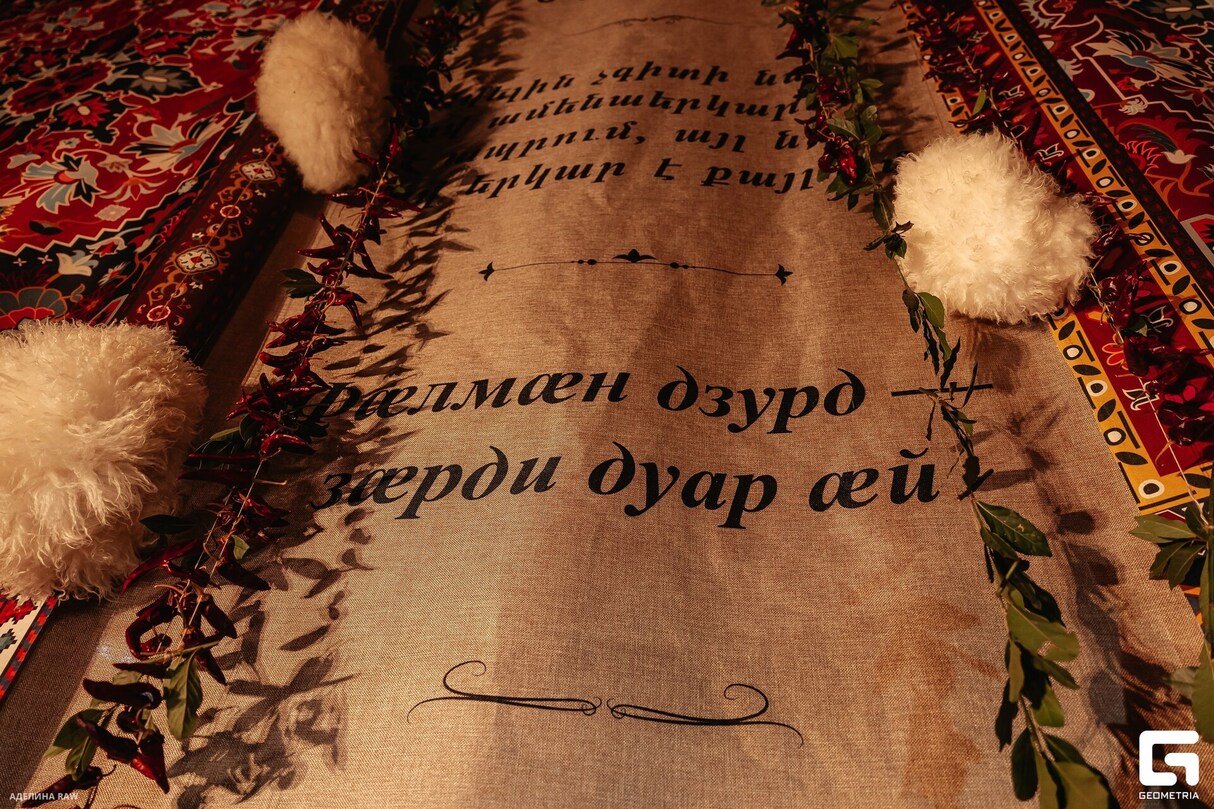 չգիտի
ամենաերկար
ապրում, այլ
երկար է քայլ
Фӕлмӕн дзурд —
зӕрди дуар ӕй
АДЕЛИНА RAW
GEOMETRIA